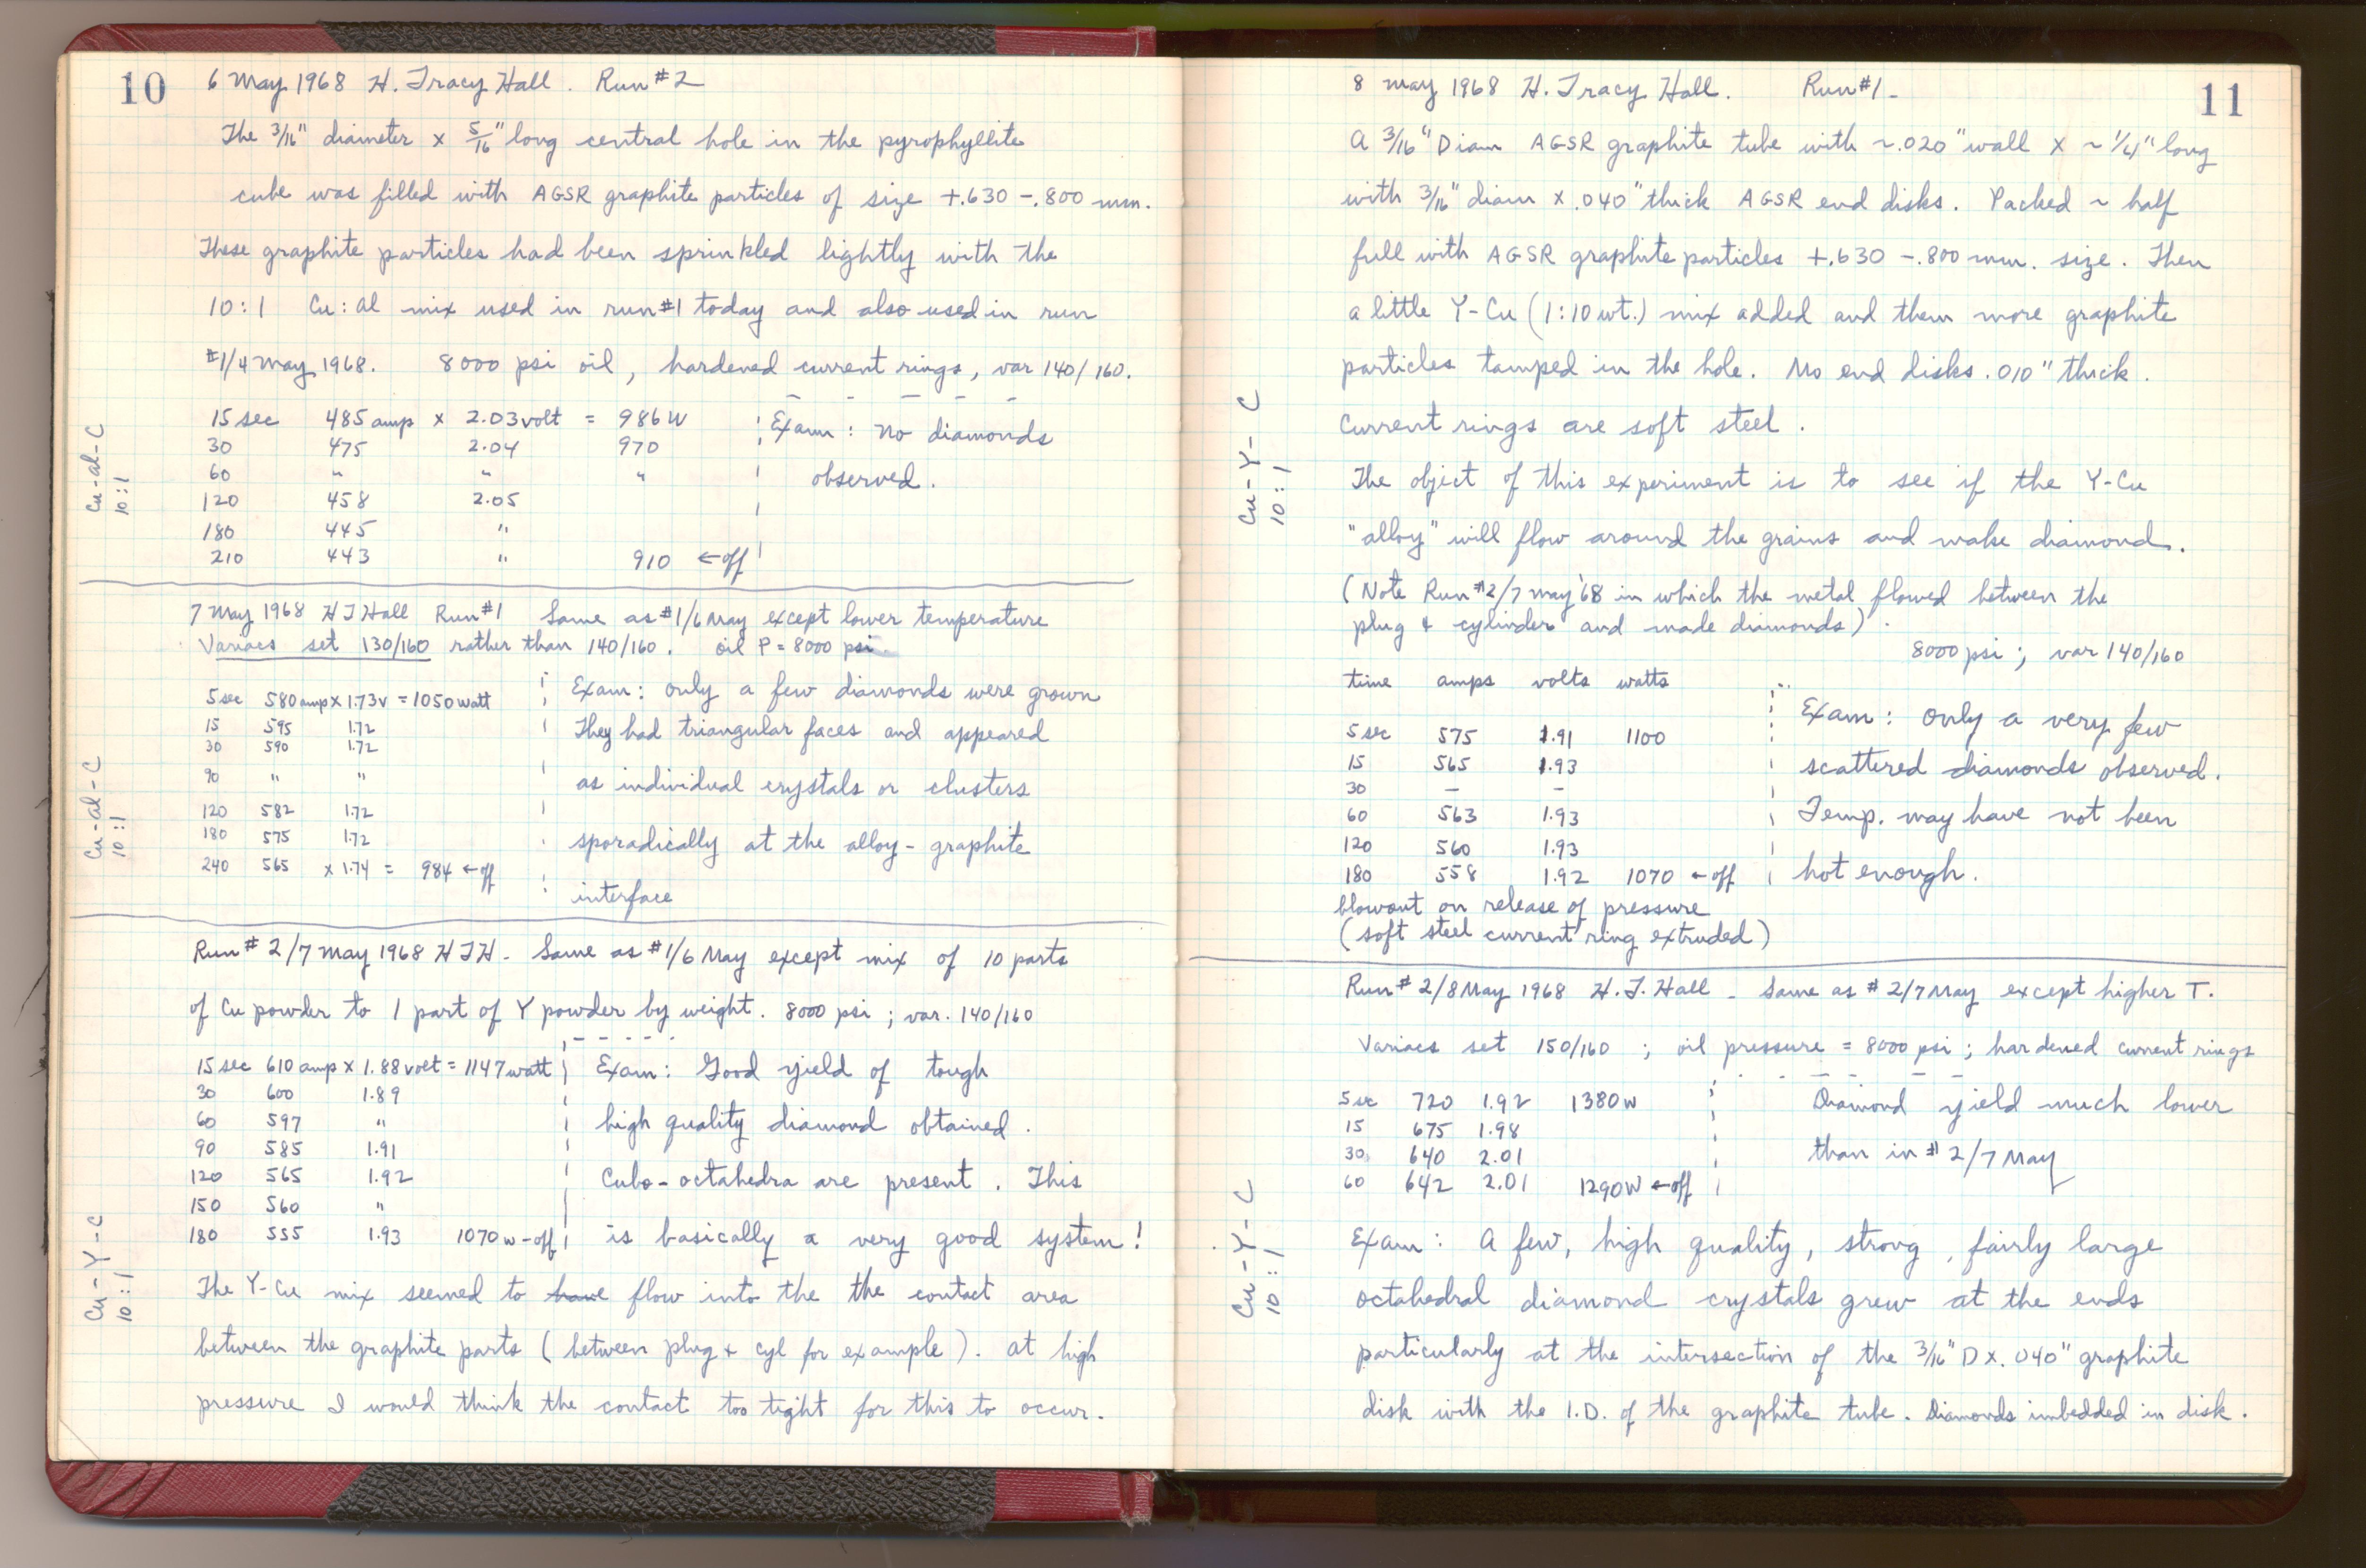 10
6 May 1968 H. Tracy Hall. Run #2
The 3/16" diameter x 5/16" long central hole in the pyrophyllite
cube was filled with AGSR graphite particles of size +.630 -.800 mm.
These graphite particles had been sprinkled lightly with the
10:1 Cu:Al mix used in run #1 today and also used in run
#1/4 May 1968. 8000 psi oil, hardened current rings, var 140/160.
Cu-Al-C
10:1
15 sec 485 amp x 2.03 volt = 986 W
30 475 2.04 970
60 " " "
120 458 2.05
180 445 "
210 443 " 910 ←off
Exam: No diamonds
observed.
7 May 1968 H T Hall Run #1 Same as #1/6 May except lower temperature
Variacs set 130/160 rather than 140/160. oil P = 8000 psi.
Cu-Al-C
10:1
5 sec 580 amp x 1.73 v = 1050 watt
15 595 1.72
30 590 1.72
90 " "
120 582 1.72
180 575 1.72
240 565 x 1.74 = 984 ←off
Exam: only a few diamonds were grown
They had triangular faces and appeared
as individual crystals or clusters
sporadically at the alloy-graphite
interface
Run #2/7 May 1968 H T H - Same as #1/6 May except mix of 10 parts
of Cu powder to 1 part of Y powder by weight. 8000 psi; var. 140/160
Cu-Y-C
10:1
15 sec 610 amp x 1.88 volt = 1147 watt
30 600 1.89
60 597 "
90 585 1.91
120 565 1.92
150 560 "
180 555 1.93 1070 w - off
Exam: Good yield of tough
high quality diamond obtained.
Cubo-octahedra are present. This
is basically a very good system!
The Y-Cu mix seemed to have flow into the the contact area
between the graphite parts (between plug + cyl for example). At high
pressure I would think the contact too tight for this to occur.
11
8 May 1968 H. Tracy Hall. Run #1 -
A 3/16" Diam AGSR graphite tube with ~.020" wall x ~1/4" long
with 3/16" diam x .040" thick AGSR end disks. Packed ~ half
full with AGSR graphite particles +.630 -.800 mm. size. Then
a little Y-Cu (1:10 wt.) mix added and then more graphite
particles tamped in the hole. No end disks .010" thick.
Current rings are soft steel.
Cu-Y-C
10:1
The object of this experiment is to see if the Y-Cu
"alloy" will flow around the grains and make diamond.
(Note Run #2/7 May '68 in which the metal flowed between the
plug & cylinder and made diamonds).
8000 psi; var 140/160
time amps volts watts
5 sec 575 1.91 1100
15 565 1.93
30 - -
60 563 1.93
120 560 1.93
180 558 1.92 1070 ←off
Exam: Only a very few
scattered diamonds observed.
Temp. may have not been
hot enough.
blowout on release of pressure
(soft steel current ring extruded)
Run #2/8 May 1968 H. T. Hall - Same as #2/7 May except higher T.
Variacs set 150/160; oil pressure = 8000 psi; hardened current rings
5 sec 720 1.92 1380 W
15 675 1.98
30 640 2.01
60 642 2.01 1290 W ←off
Diamond yield much lower
than in #2/7 May
Cu-Y-C
10:1
Exam: A few, high quality, strong, fairly large
octahedral diamond crystals grew at the ends
particularly at the intersection of the 3/16" D x .040" graphite
disk with the I.D. of the graphite tube. Diamonds imbedded in disk.